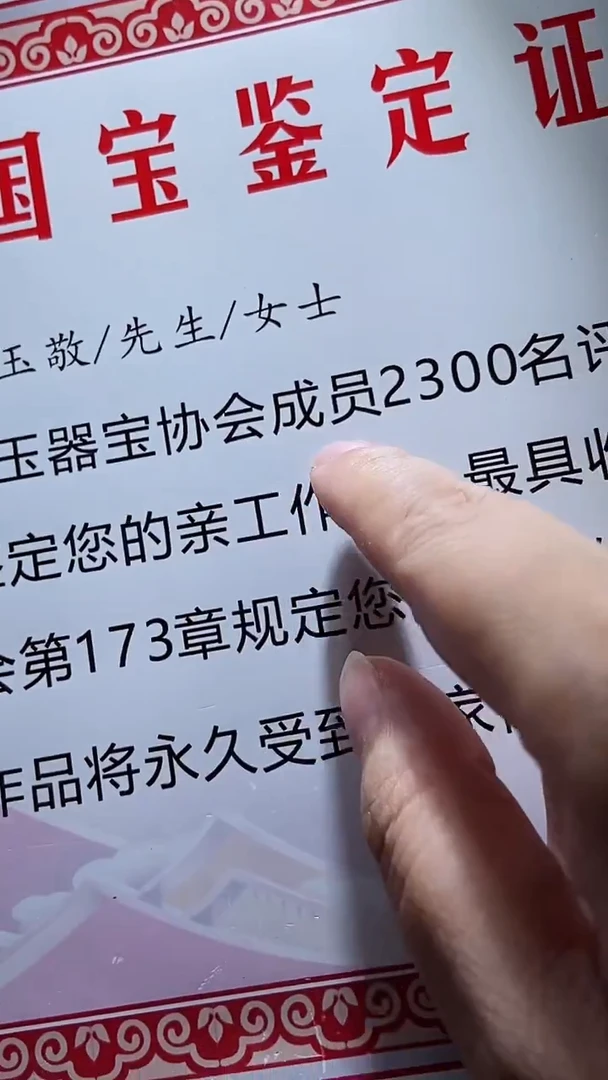 国宝鉴定证
玉敬/先生/女士
玉器宝协会成员2300名评
定您的亲工作 最具收
会第173章规定您
作品将永久受到